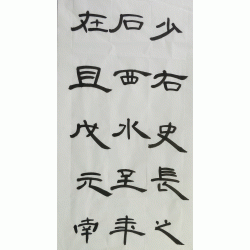 少右史長之
石西水至来
在且戊元南